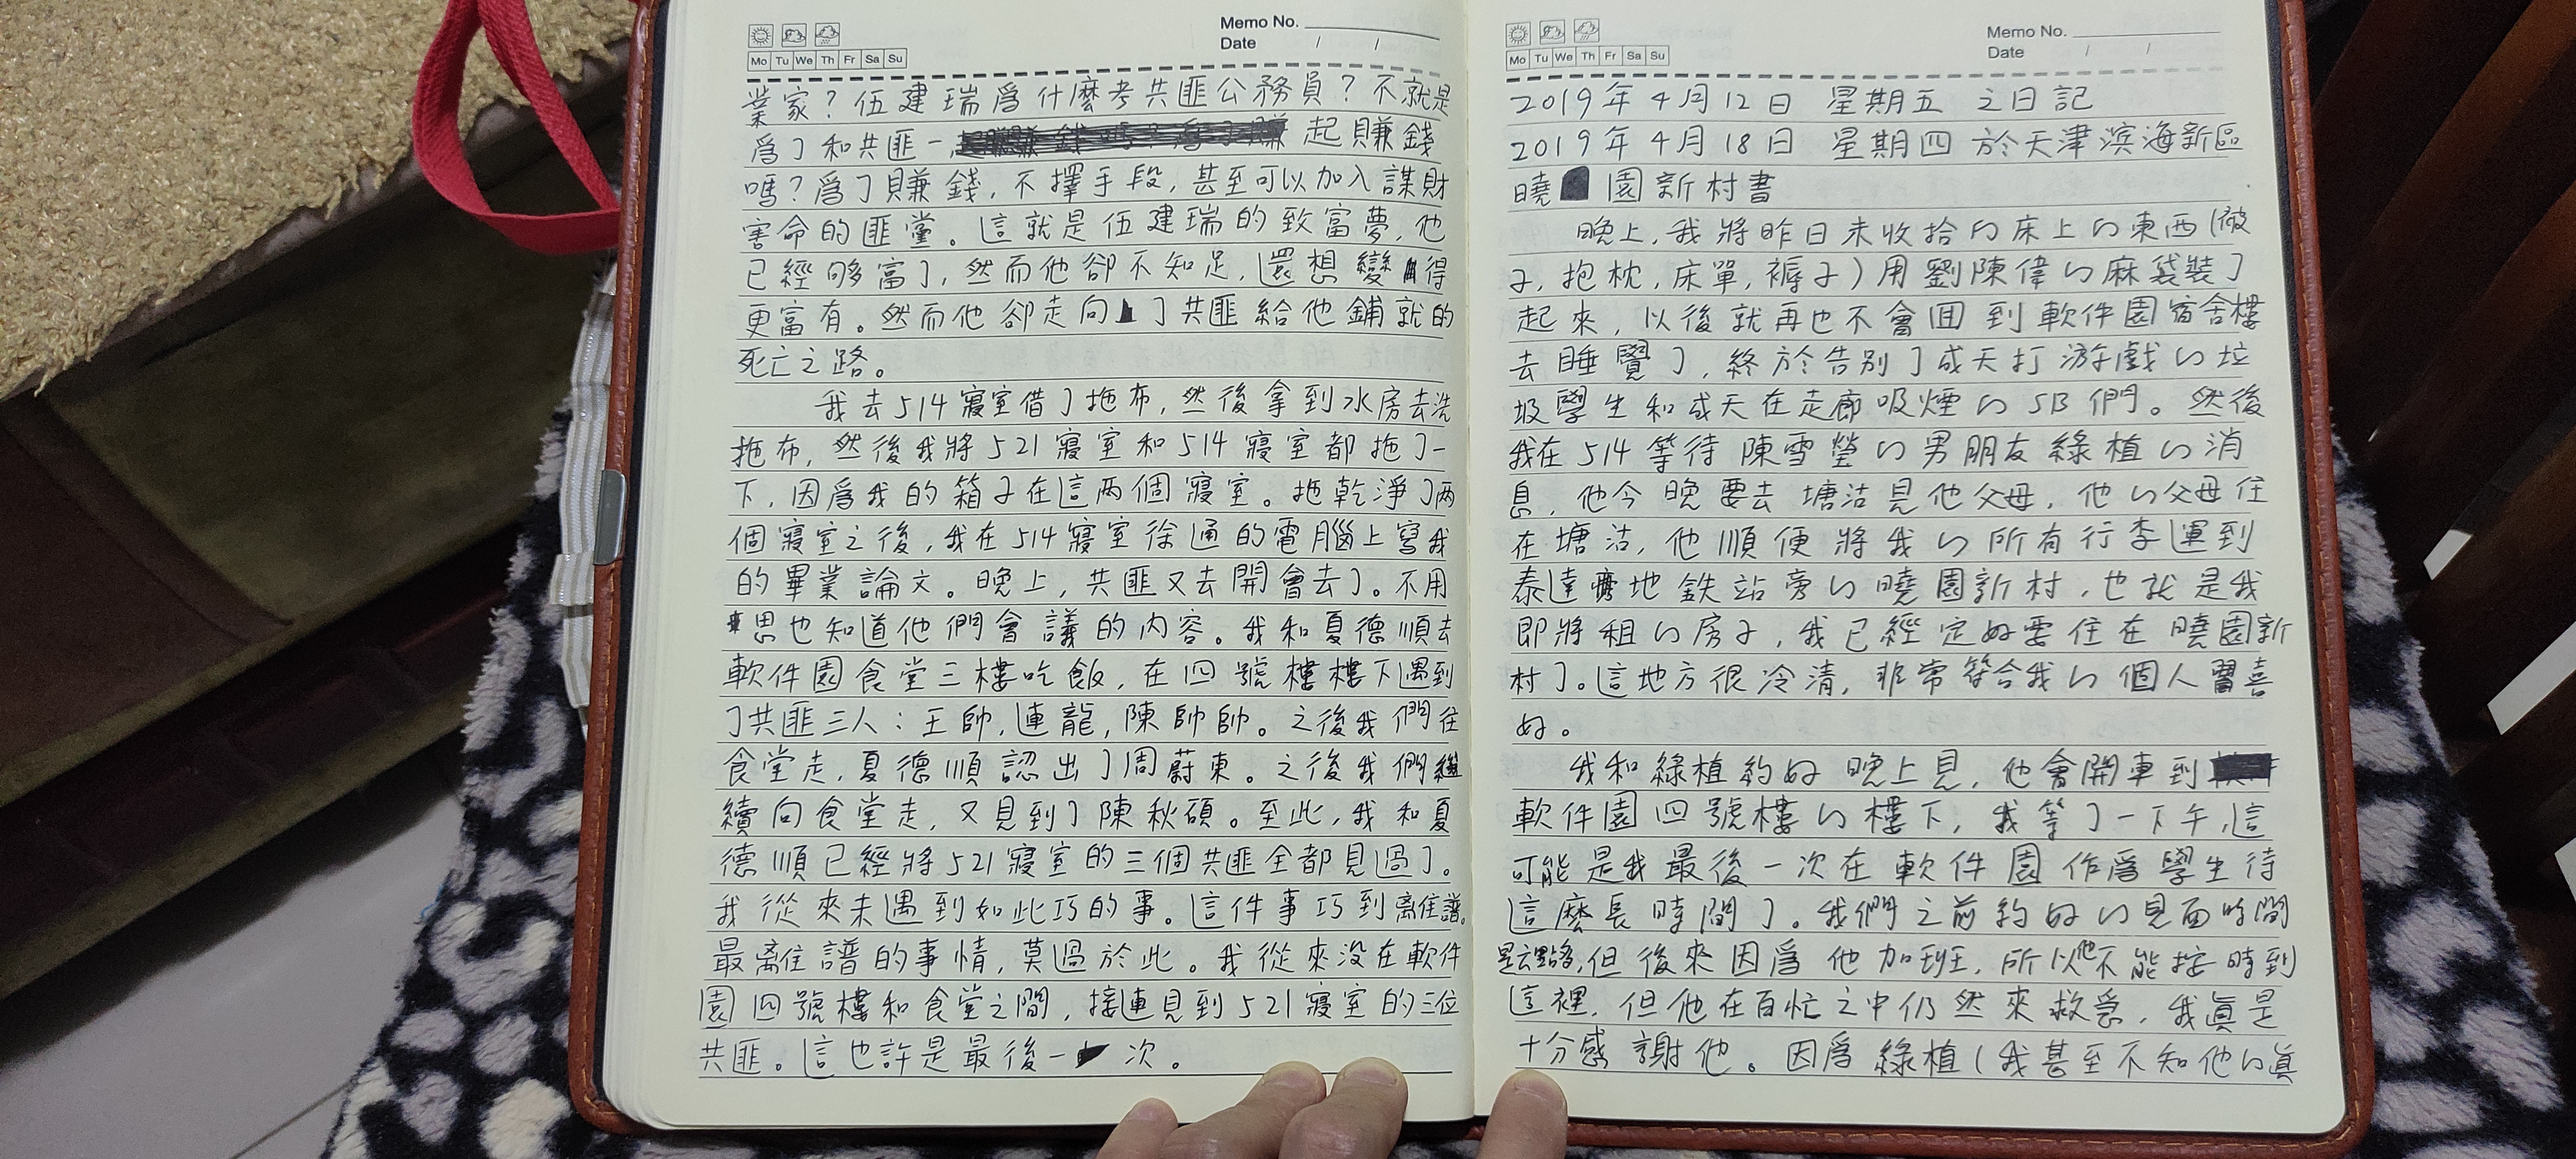 Memo No.
Date / /
Mo Tu We Th Fr Sa Su
業家？伍建瑞爲什麼考共匪公務員？不就是
爲了和共匪一起賺錢
嗎？爲了賺錢，不擇手段，甚至可以加入謀財
害命的匪黨。這就是伍建瑞的致富夢，他
已經够富了，然而他卻不知足，還想變得
更富有。然而他卻走向了共匪給他鋪就的
死亡之路。
我去514寢室借了拖布，然後拿到水房去洗
拖布，然後我將521寢室和514寢室都拖了一
下，因爲我的箱子在這两個寢室。拖乾淨了两
個寢室之後，我在514寢室徐通的電腦上寫我
的畢業論文。晚上，共匪又去開會去了。不用
思也知道他們會議的内容。我和夏德順去
軟件園食堂三樓吃飯，在四號樓樓下遇到
了共匪三人：王帥，連龍，陳帥帥。之後我們往
食堂走，夏德順認出了周蔚東。之後我們繼
續向食堂走，又見到了陳秋碩。至此，我和夏
德順已經將521寢室的三個共匪全都見過了。
我從來未遇到如此巧的事。這件事巧到離譜。
最離譜的事情，莫過於此。我從來没在軟件
園四號樓和食堂之間，接連見到521寢室的三位
共匪。這也許是最後一次。
Memo No.
Date / /
Mo Tu We Th Fr Sa Su
2019年4月12日 星期五 之日記
2019年4月18日 星期四 於天津滨海新區
曉園新村書
晚上，我將昨日未收拾の床上の東西（被
子，抱枕，床單，褥子）用劉陳偉の麻袋裝了
起來，以後就再也不會回到軟件園宿舍樓
去睡覺了，終於告别了成天打游戲の垃
圾學生和成天在走廊吸煙のSB們。然後
我在514等待陳雪瑩の男朋友綠植の消
息，他今晚要去塘沽見他父母，他の父母住
在塘沽，他順便將我の所有行李運到
泰達地鉄站旁の曉園新村，也就是我
即將租の房子，我已經定好要住在曉園新
村了。這地方很冷清，非常符合我の個人喜
好。
我和綠植約好晚上見，他會開車到
軟件園四號樓の樓下，我等了一下午，這
可能是我最後一次在軟件園作爲學生待
這麼長時間了。我們之前約好の見面時間
是六點多，但後來因爲他加班，所以他不能按時到
這裡，但他在百忙之中仍然來救急，我眞是
十分感謝他。因爲綠植（我甚至不知他の眞